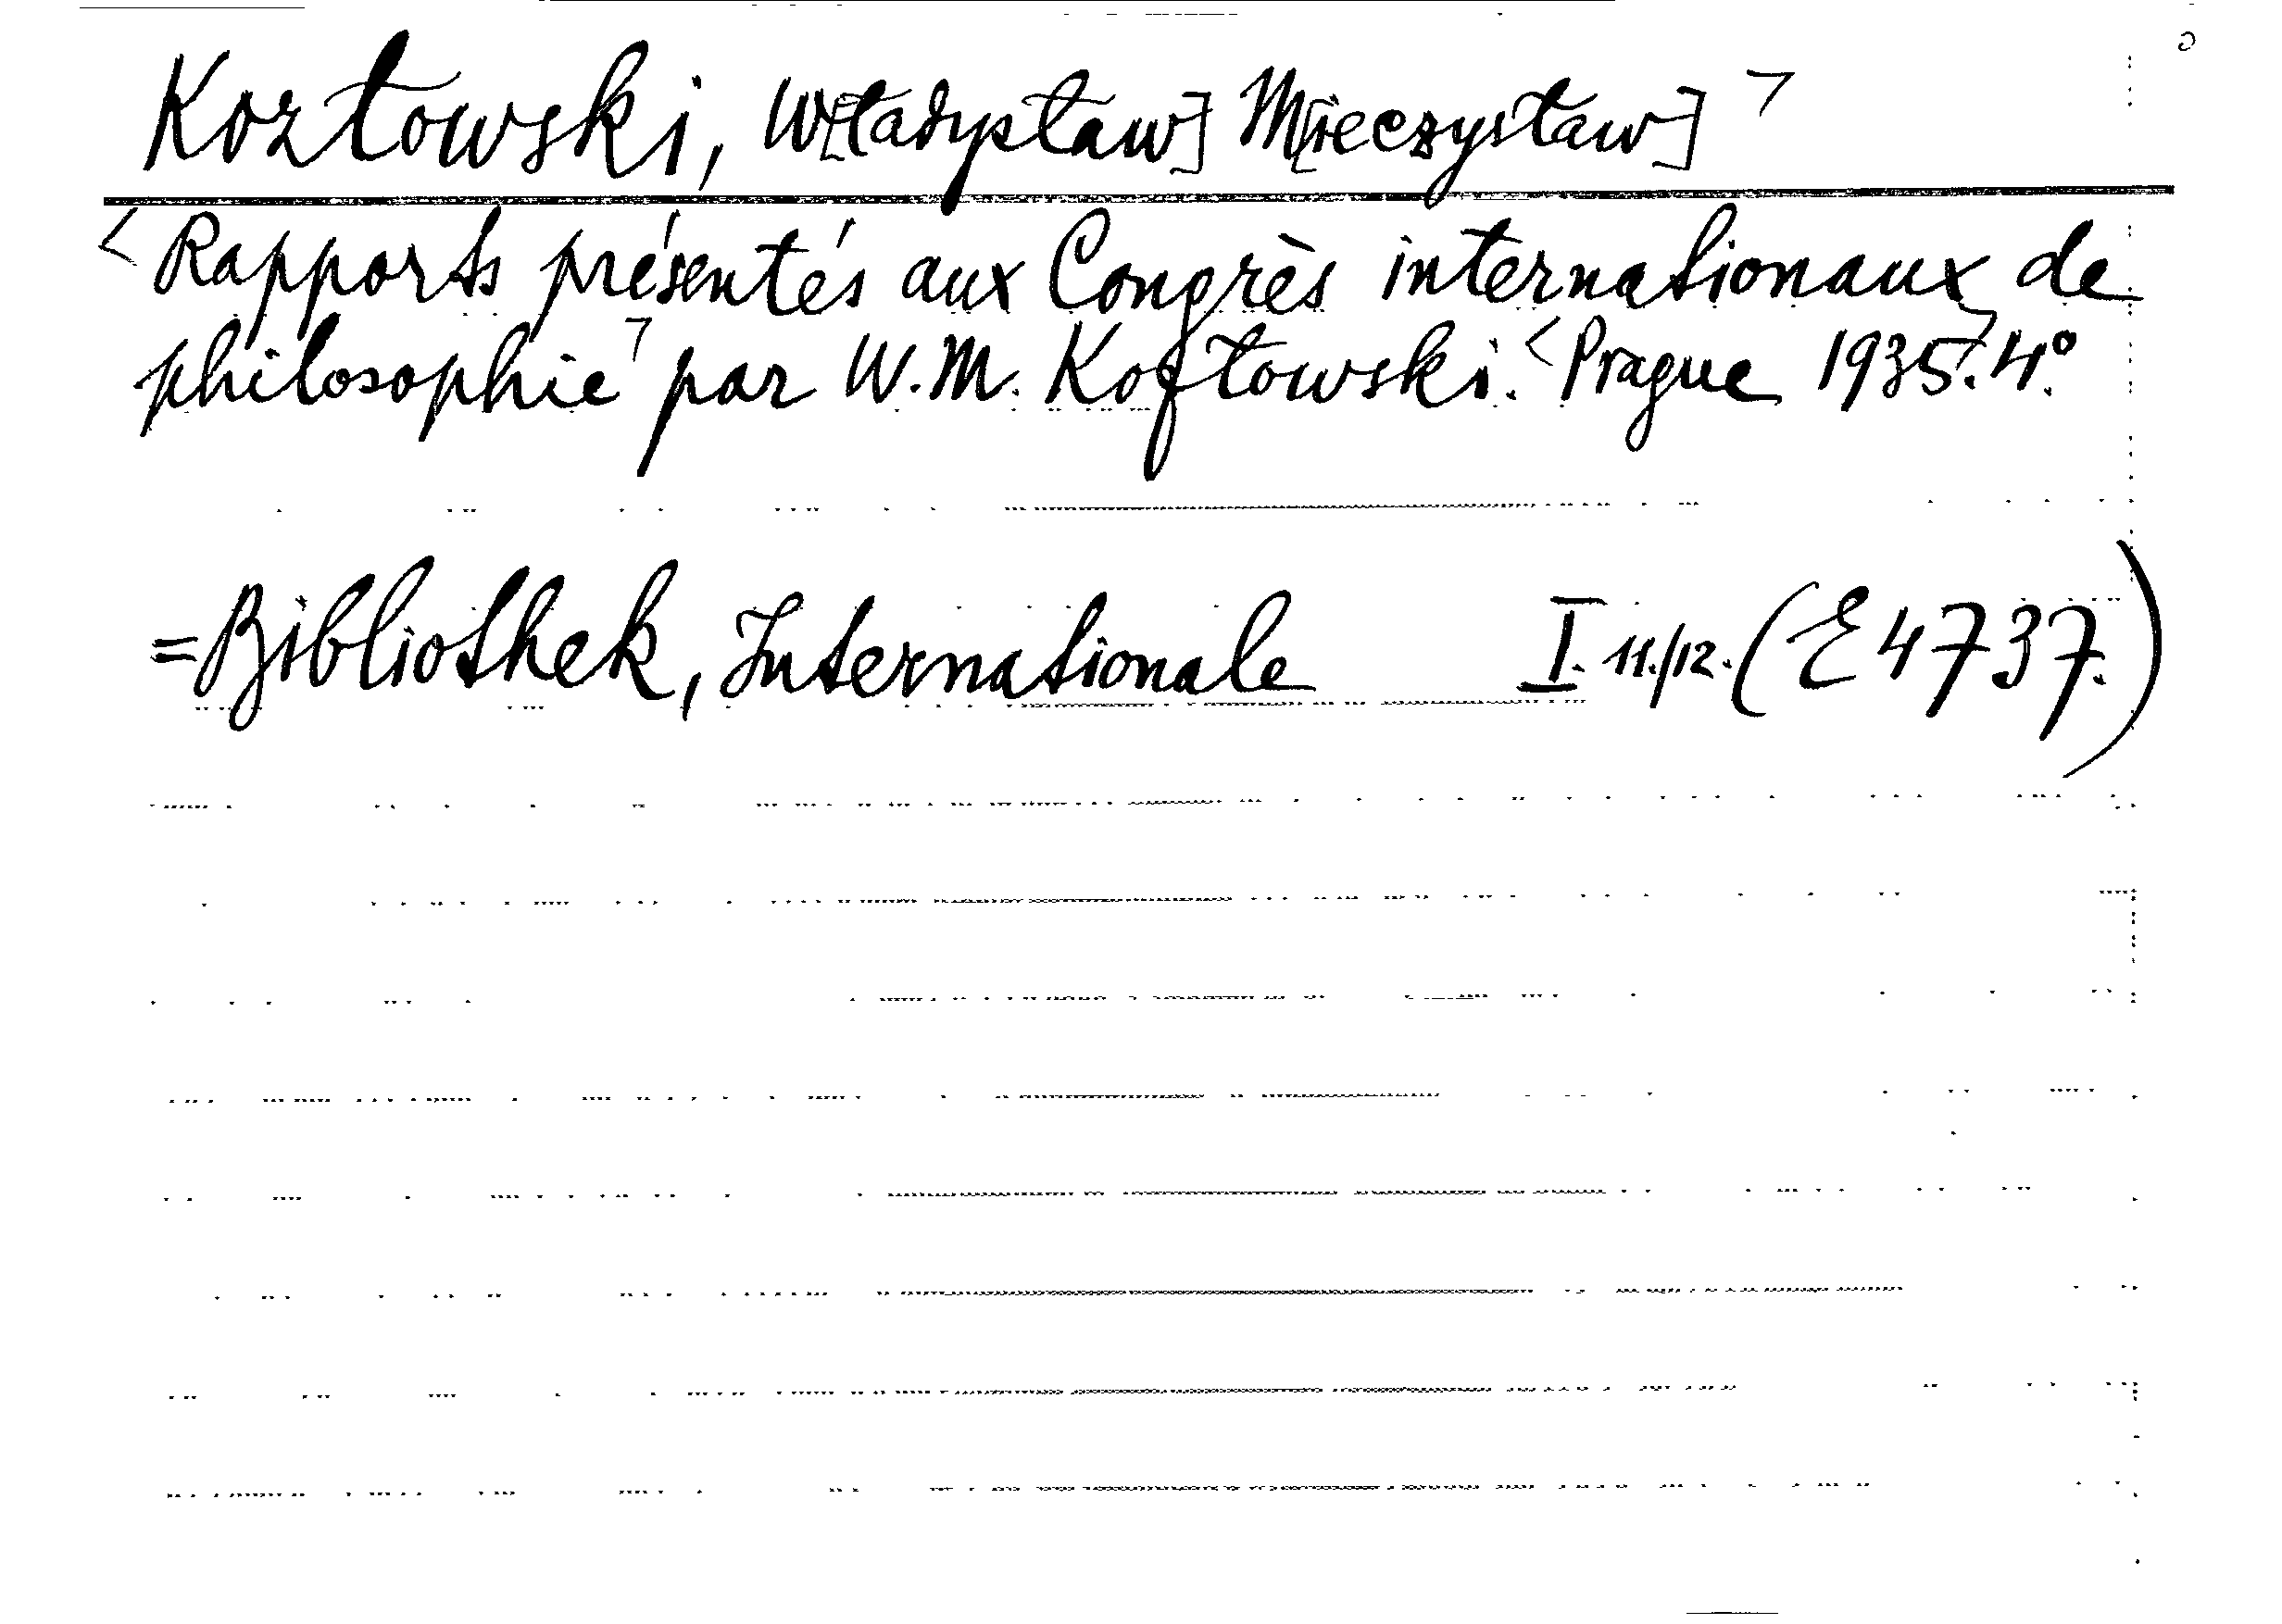 Kozłowski, W[ładysław] M[ieczysław] ⌝
< Rapports présentés aux Congrès internationaux de
philosophie ⌝ par W. M. Kozłowski. < Prague 1935. ⌝ 4°.
= Bibliothek, Internationale I. 11./12. (E 4737.)